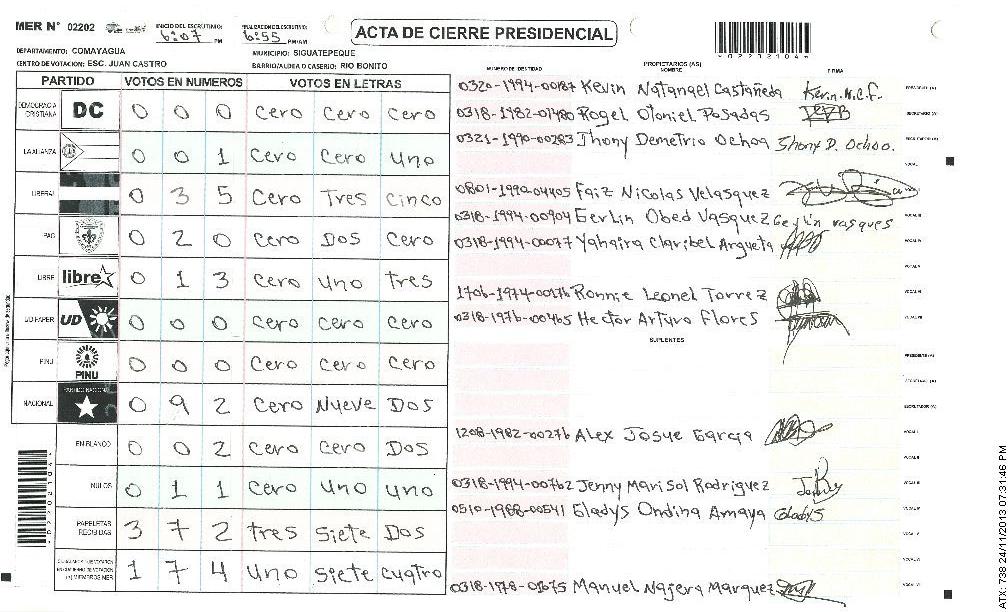 MER N° 02202
INICIO DEL ESCRUTINIO: 6:07 PM
FINALIZACION DEL ESCRUTINIO: 6:55 PM/AM
ACTA DE CIERRE PRESIDENCIAL
DEPARTAMENTO: COMAYAGUA
MUNICIPIO: SIGUATEPEQUE
CENTRO DE VOTACION: ESC. JUAN CASTRO
BARRIO/ALDEA O CASERIO: RIO BONITO
PARTIDO VOTOS EN NUMEROS VOTOS EN LETRAS
DEMOCRACIA CRISTIANA DC 0 0 0 Cero Cero Cero
LA ALIANZA 0 0 1 Cero Cero Uno
LIBERAL 0 3 5 Cero Tres Cinco
PAC 0 2 0 Cero Dos Cero
LIBRE libre 0 1 3 Cero Uno Tres
UD FAPER UD 0 0 0 Cero Cero Cero
PINU PINU 0 0 0 Cero Cero Cero
NACIONAL PARTIDO NACIONAL 0 9 2 Cero Nueve Dos
EN BLANCO 0 0 2 Cero Cero Dos
NULOS 0 1 1 Cero Uno Uno
PAPELETAS RECIBIDAS 3 7 2 Tres Siete Dos
1 7 4 Uno Siete Cuatro
NUMERO DE IDENTIDAD PROPIETARIOS (AS) NOMBRE FIRMA
0320-1994-00187 Kevin Natanael Castañeda Kevin.N.C.F.
0318-1982-01480 Rogel Otoniel Posadas
0321-1990-00283 Jhony Demetrio Ochoa Jhony D. Ochoa.
0801-1990-04405 Faiz Nicolas Velasquez
0318-1994-00904 Gerlin Obed Vasquez Gerlin vasques
0318-1994-00077 Yahaira Claribel Argueta
1706-1974-00176 Ronnie Leonel Torrez
0318-1976-00465 Hector Arturo Flores
SUPLENTES
1208-1982-00276 Alex Josue Garcia
0318-1994-00762 Jenny Marisol Rodriguez Jenny
0510-1968-00541 Gladys Ondina Amaya Gladys
0318-1978-01675 Manuel Najera Marquez
ATX: 738 24/11/2013 07:31:46 PM